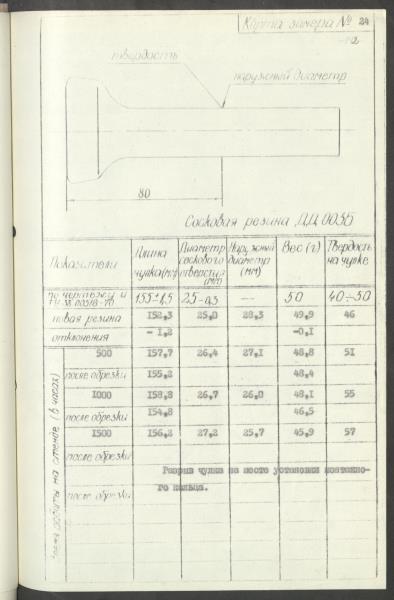 Карта замера № 24
твердость
наружный диаметр
80
Сосковая резина ДД.0035
Показатели Длина чулка(мм) Диаметр соскового отверстия (мм) Наружный диаметр (мм) Вес (г) Твердость на чулке
по чертежу и 155±1,5 25-0,5 — 50 40÷50
новая резина 152,3 25,0 28,3 49,9 46
отклонения - 1,2 -0,1
Время работы на стенде (в часах)
500 157,7 26,4 27,1 48,8 51
после обрезки 155,2 48,4
1000 158,8 26,7 26,0 48,1 55
после обрезки 154,8 46,5
1500 156,2 27,2 25,7 45,9 57
после обрезки
Разрыв чулка на месте установки монтажно-
после обрезки го кольца.